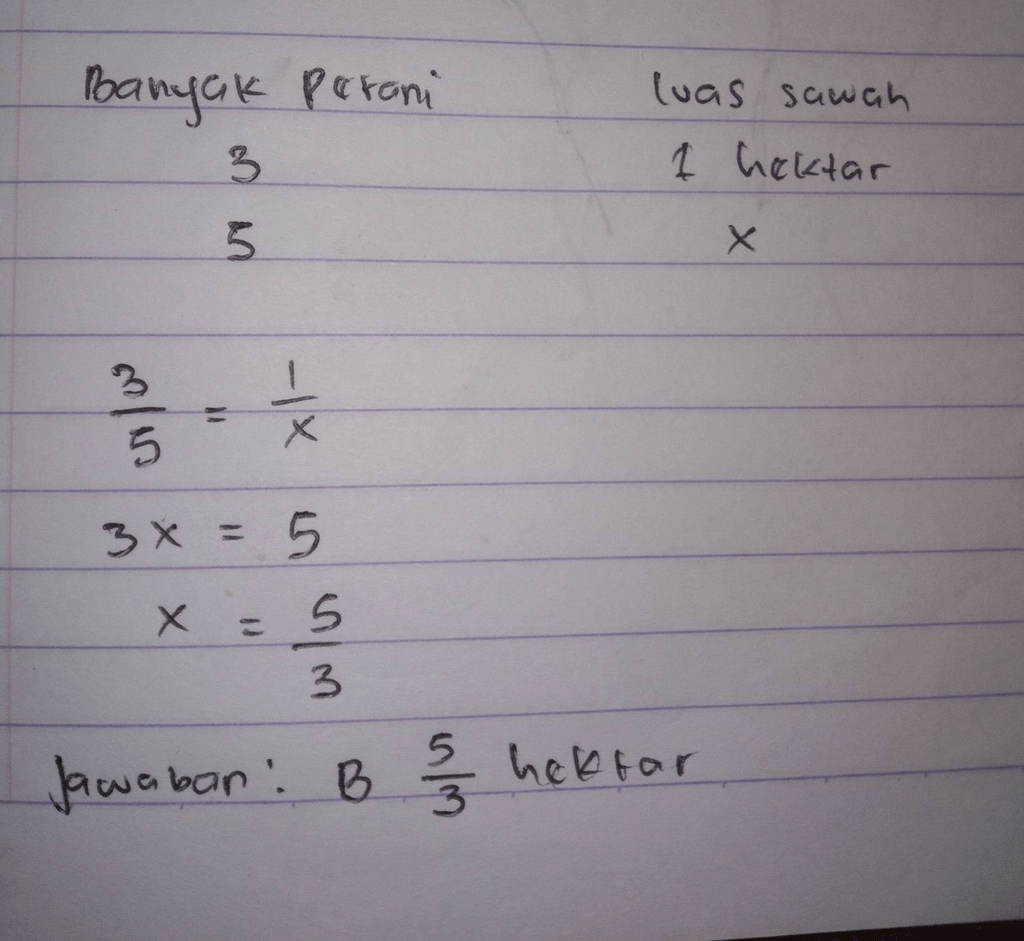 Banyak Petani luas sawah
3 1 hektar
5 x
3/5 = 1/x
3x = 5
x = 5/3
Jawaban: B 5/3 hektar